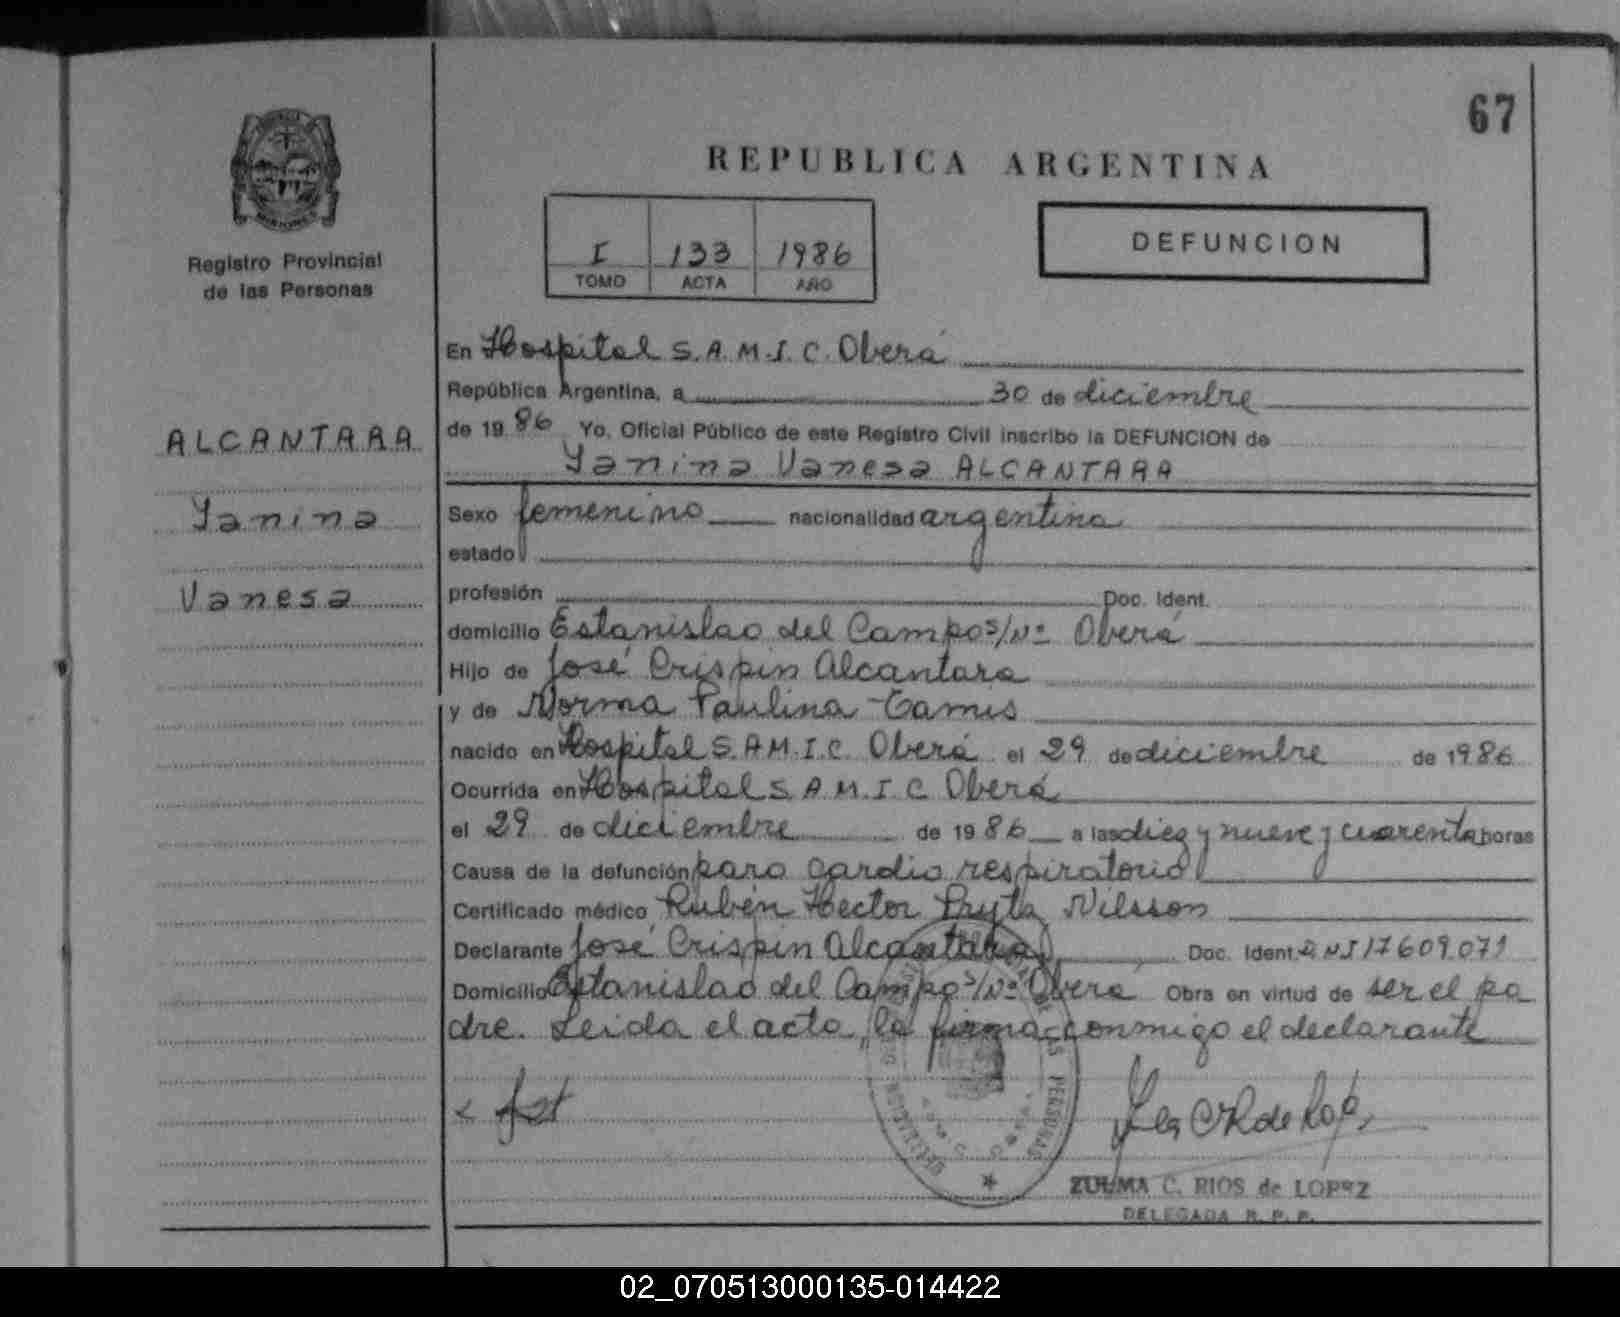 67
REPUBLICA ARGENTINA
I 133 1986
TOMO ACTA AÑO
DEFUNCION
Registro Provincial
de las Personas
ALCANTARA
Yanina
Vanesa
En Hospital S.A.M.I.C. Oberá
República Argentina, a 30 de diciembre
de 1986 Yo, Oficial Público de este Registro Civil inscribo la DEFUNCION de
Yanina Vanesa ALCANTARA
Sexo femenino nacionalidad argentina
estado
profesión Doc. Ident.
domicilio Estanislao del Campo s/Nº Oberá
Hijo de José Crispin Alcantara
y de Norma Paulina Tamis
nacido en Hospital S.A.M.I.C. Oberá el 29 de diciembre de 1986
Ocurrida en Hospital S.A.M.I.C Oberá
el 29 de diciembre de 1986 a las diez y nueve y cuarenta horas
Causa de la defunción paro cardio respiratorio
Certificado médico Rubén Hector Pryta Nilsson
Declarante José Crispin Alcantara Doc. Ident. DNI 17609.071
Domicilio Estanislao del Campo s/Nº Oberá Obra en virtud de ser el pa
dre. Leida el acta, la firma conmigo el declarante
ZULMA C. RIOS de LOPEZ
DELEGADA R. P. P.
02_070513000135-014422